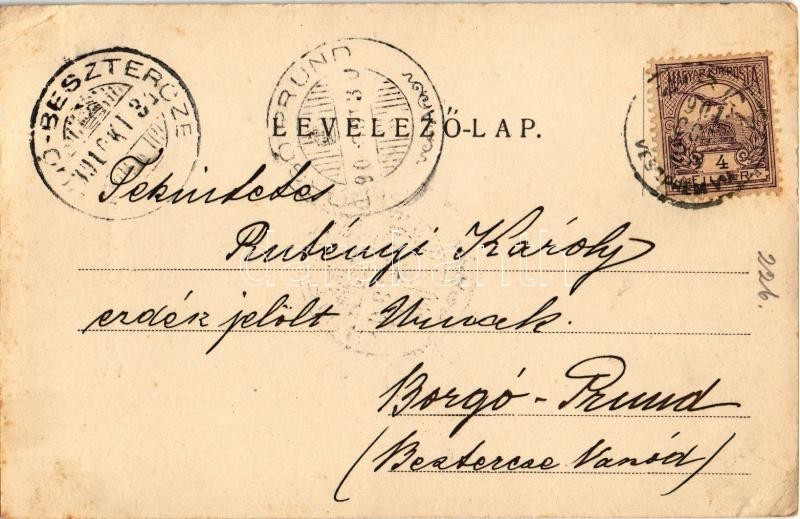 BESZTERCZE
BORGOPRUND
MAGYAR KIR. POSTA
4
LEVELEZŐ-LAP.
Tekintetes
Rutényi Károly
erdész jelölt Urnak.
Borgó-Prund
(Besztercse Naszód)
226.
darabanth